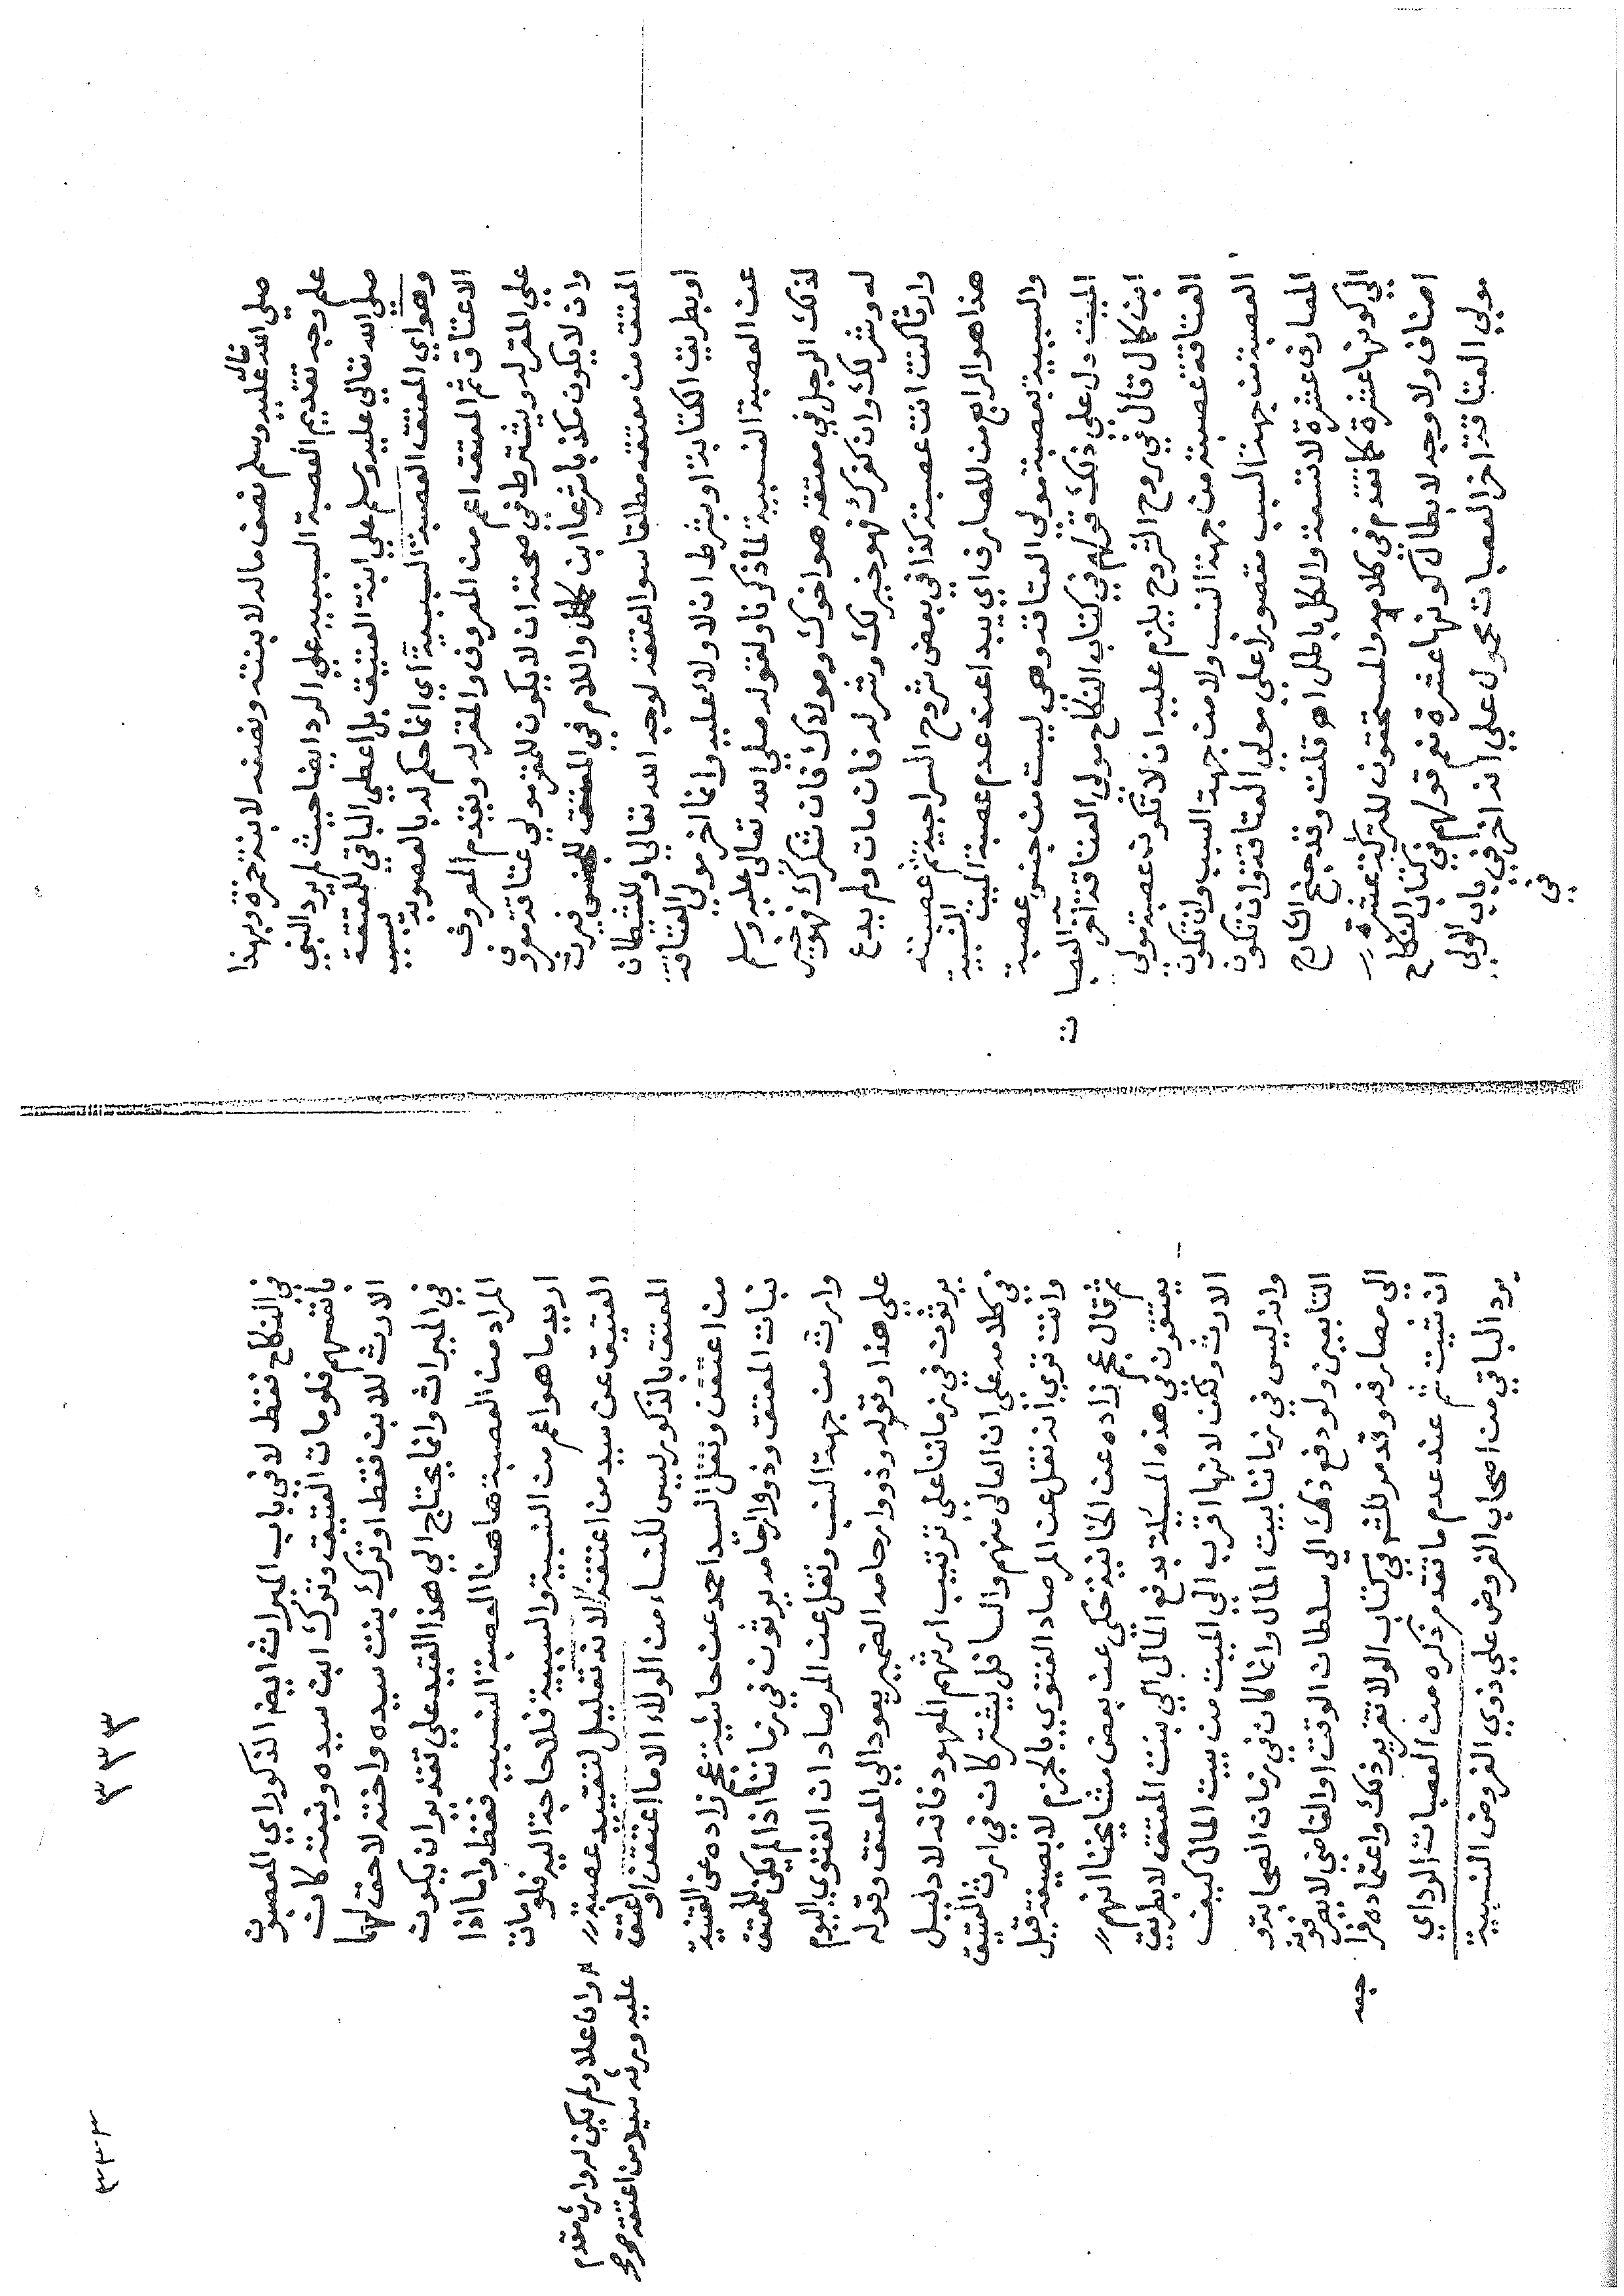 صلي الله تعالى عليه وسلم نصف ماله لابنته ونصفه لابنة حمزة وبهذا
علم وجه تقديم العصبة السببيه علي الرد ايضا حيث لم يرد النبي
صلي الله تعالي عليه وسلم علي ابنة العتيق بل اعطي الباقي للمعتقة
وهو اي المعتق العصبة السببية اي انما حكم له بالعصوبة بسبب
الاعتاق ثم المعتق اعم من المعروف والمقر له ويقدم المعروف
علي المقر له ويشترط في صحته ان لا يكون للمقر مولي عتاقة معروف
وان لا يكون مكذبا شرعا ابن كمال واللام في المعتق للجنس فيرث
المعتق من معتقه مطلقا سوا اعتقه لوجه الله تعالي او للشيطان
او بطريق الكتابة او بشرط ان لا ولاء عليه وانما اخر مولي العتاقة
عن العصبة النسبية لما ذكرنا ولقوله صلي الله تعالى عليه وسلم
لذلك الرجل في معتقه هو اخوك ومولاك فان شكرك فهو خير
له وشر لك وان كفرك فهو خير لك وشر له فان مات ولم يدع
وارثا كنت انت عصبته كذا في بعض شروح السراجية ثم عصبته
هذا هو الرابع من المصارف اي يبدا عند عدم عصبة الميت النسبية
والسببية بعصبة مولي العتاقة وهي ليست من جنس عصبة
الميت دل علي ذلك قولهم في كتاب النكاح مولي العتاقة آخر العصبات
ابن كمال قال في روح الشروح يلزم عليه ان لا تكون عصبة مولي
العتاقة عصبة من جهة النسب ولا من جهة السبب وان تكون
العصبة من جهة السبب مقصورا علي مولي العتاقة وان تكون
المصارف عشرة لا تسعة والكل باطل اهـ قلت وقد جنح الشارح
الي كونها عشرة كما تقدم في كلامه والمستحقون للتركة عشرة
اصناف ولا وجه لابطال كونها عشرة نعم قولهم في كتاب النكاح
مولي العتاقة اخر العصبات محمول علي انه اخر في باب الولي
في
٣٣٣
٣٣٣
في النكاح فقط لا في باب الميراث ايضا الذكور اي العصبون
بانفسهم فلو مات العتيق وترك ابن سيده وبنته كان
الارث للابن فقط او ترك بنت سيده واخته لا حق لهما
في الميراث وانما يحتاج الي هذا القيد علي تقدير ان يكون
المراد من العصبة هاهنا العصبة النسبيه فقط واما اذا
اريد ما هو اعم من النسبية والسببية فلا حاجة اليه فلو مات
العتيق عن سيد من اعتقه لانه تعليل لتقييد عصبته
المعتق بالذكور ليس للنساء من الولاء الا ما اعتقن او اعتق
من اعتقن ونقل السيد احمد عن حاشية عجم زاده عن القنية
بنات المعتق وذووا ارحامه يرثون في زماننا اذا لم يكن للمعتق
وارث من جهة النسب ونقل عن المرصاد ان الفتوي اليوم
علي هذا وقوله وذووا ارحامه الضمير يعود الي المعتق وقوله
يرثون في زماننا علي ترتيب ارثهم المعهود فانه لا دليل
في كلامه علي ان العالى منهم والسافل يشتركان في ارث العتيق
وانت تري انه نقل عن المرصاد الفتوي بالجزم لا بصيغة قيل
ثم قال عجم زاده عن الخانية حكي عن بعض مشايخنا انهم
يفتون في هذه المسيلة بدفع المال الي بنت المعتق لا بطريق
الارث ولكن لانها اقرب الي الميت من بيت المال كيف
وانه ليس في زماننا بيت المال وانما كان في زمان الصحابة و
التابعين ولو دفع ذلك الي سلطان الوقت او القاضي لا يصرفونه
الي مصارفه وقد مر للشه في كتاب الولا تقرير ذلك واعتماده فراجعه
ان شيت ثم عند عدم ما تقدم ذكره من العصبات الرد اي
يرد الباقي من اصحاب الفروض علي ذوي الفروض النسبية
وان علا ولم يكن له وارث مقدم
عليه ورثه سيد من اعتقه